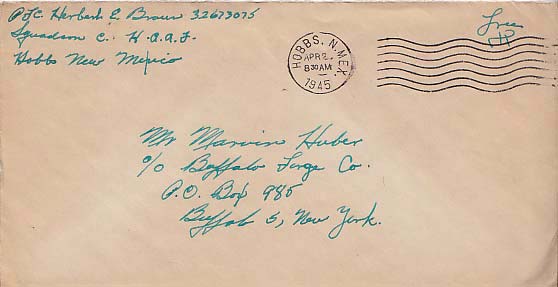 Pfc Herbert E Braun 32673075
Squadron C. H.A.A.F.
Hobbs New Mexico
HOBBS, N.MEX.
APR 2
8 30 AM
1945
Free
Mr Marvin Huber
c/o Buffalo Forge Co.
P.O. Box 985
Buffalo 5, New York.